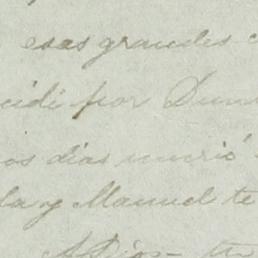 esas grandes c
cidi por Dun
os dias murió
la y Manuel te
A Dios - tu